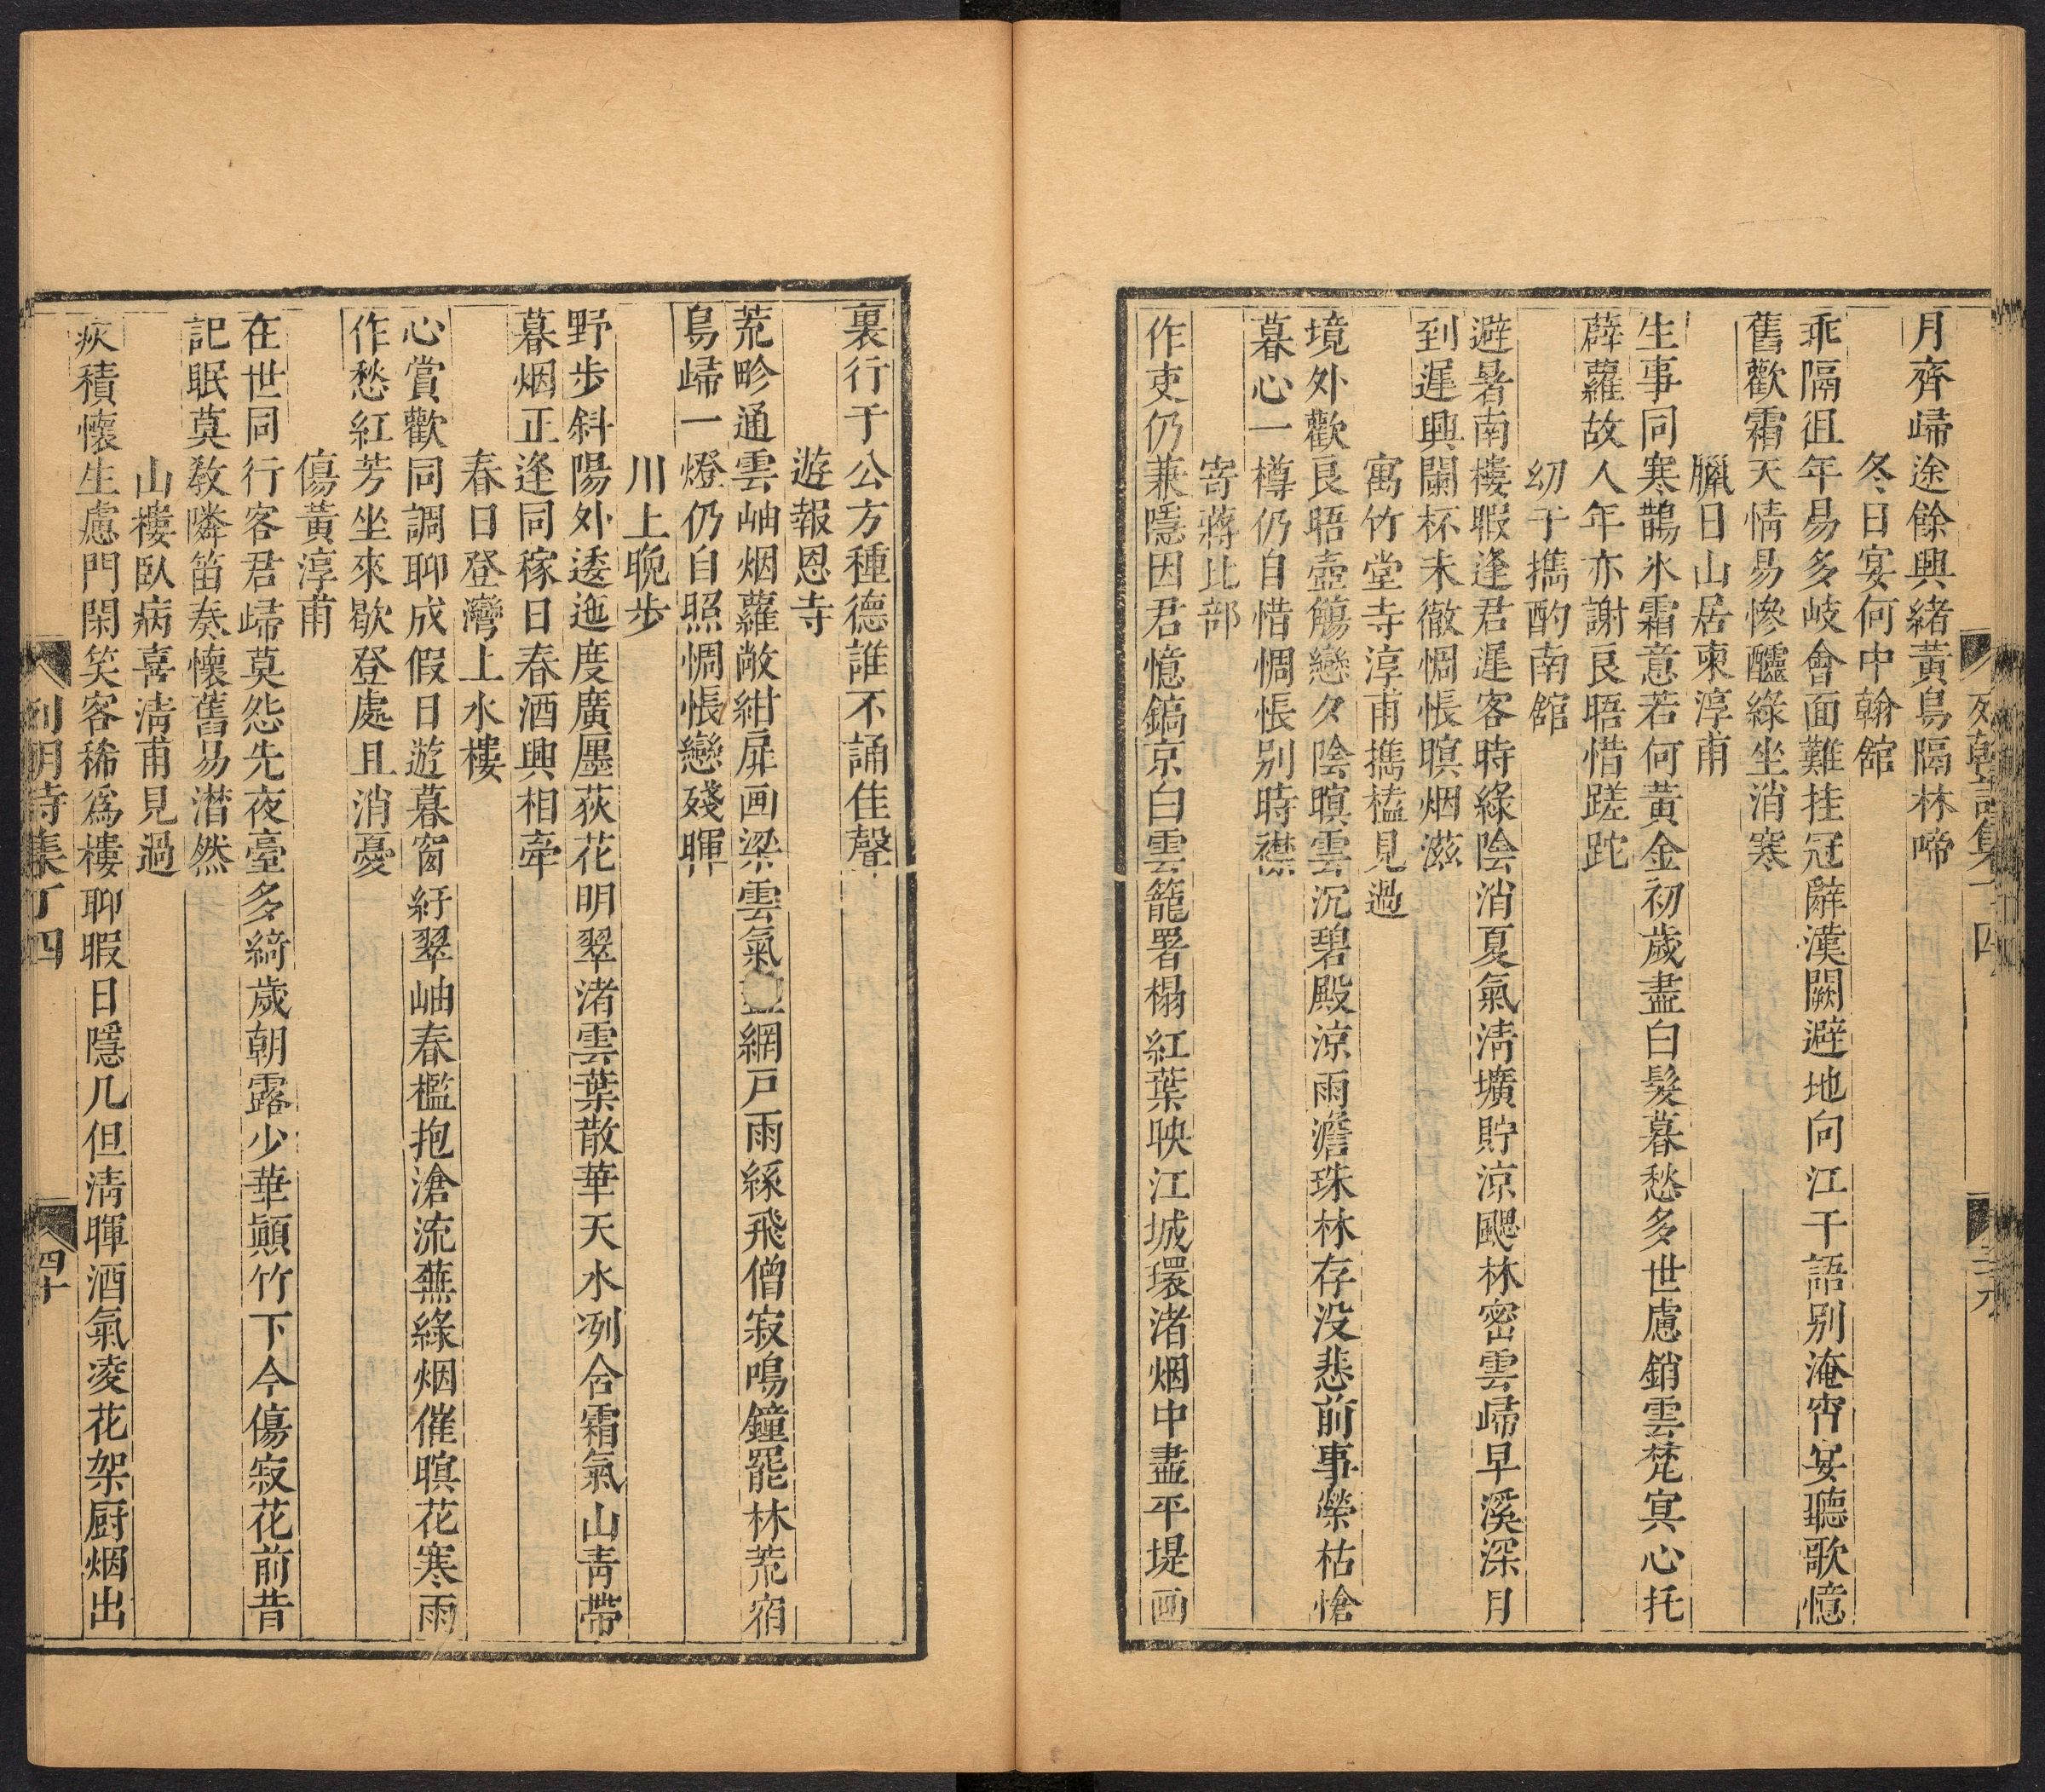 月齊歸途餘興緒黃鳥隔林啼
冬日宴何中翰館
乖隔徂年易多岐會面難挂冠辭漢闕避地向江干語别淹宵宴聽歌憶
舊歡霜天情易慘醽綠坐消寒
臘日山居柬淳甫
生事同寒鵲氷霜意若何黃金初歲盡白髮暮愁多世慮銷雲梵冥心托
薜蘿故人年亦謝良晤惜蹉跎
幼于攜酌南館
避暑南樓暇逢君遲客時綠陰消夏氣清壙貯涼颸林密雲歸早溪深月
到遲興闌杯未徹惆悵暝烟滋
寓竹堂寺淳甫攜榼見過
境外歡良晤壺觴戀夕陰暝雲沉碧殿涼雨澹珠林存没悲前事榮枯愴
暮心一樽仍自惜惆悵别時襟
寄蔣比部
作吏仍兼隱因君憶鎬京白雲籠署榻紅葉映江城環渚烟中盡平堤画
列朝詩集丁四
三十九
裏行于公方種德誰不誦佳聲
遊報恩寺
荒畛通雲岫烟蘿敞紺扉画梁雲氣網戸雨絲飛僧寂鳴鐘罷林荒宿
鳥歸一燈仍自照惆悵戀殘暉
川上晚步
野步斜陽外逶迤度廣㕓荻花明翠渚雲葉散華天水冽含霜氣山靑帶
暮烟正逢同稼日春酒興相牽
春日登灣上水樓
心賞歡同調聊成假日遊暮窗紆翠岫春檻抱滄流蕪綠烟催暝花寒雨
作愁紅芳坐來歇登處且消憂
傷黃淳甫
在世同行客君歸莫怨先夜臺多綺歲朝露少華顚竹下今傷寂花前昔
記眠莫教隣笛奏懷舊易潸然
山樓臥病喜淸甫見過
疢積懷生慮門閑笑客稀爲樓聊暇日隱几但淸暉酒氣凌花架厨烟出
列朝詩集丁四
四十